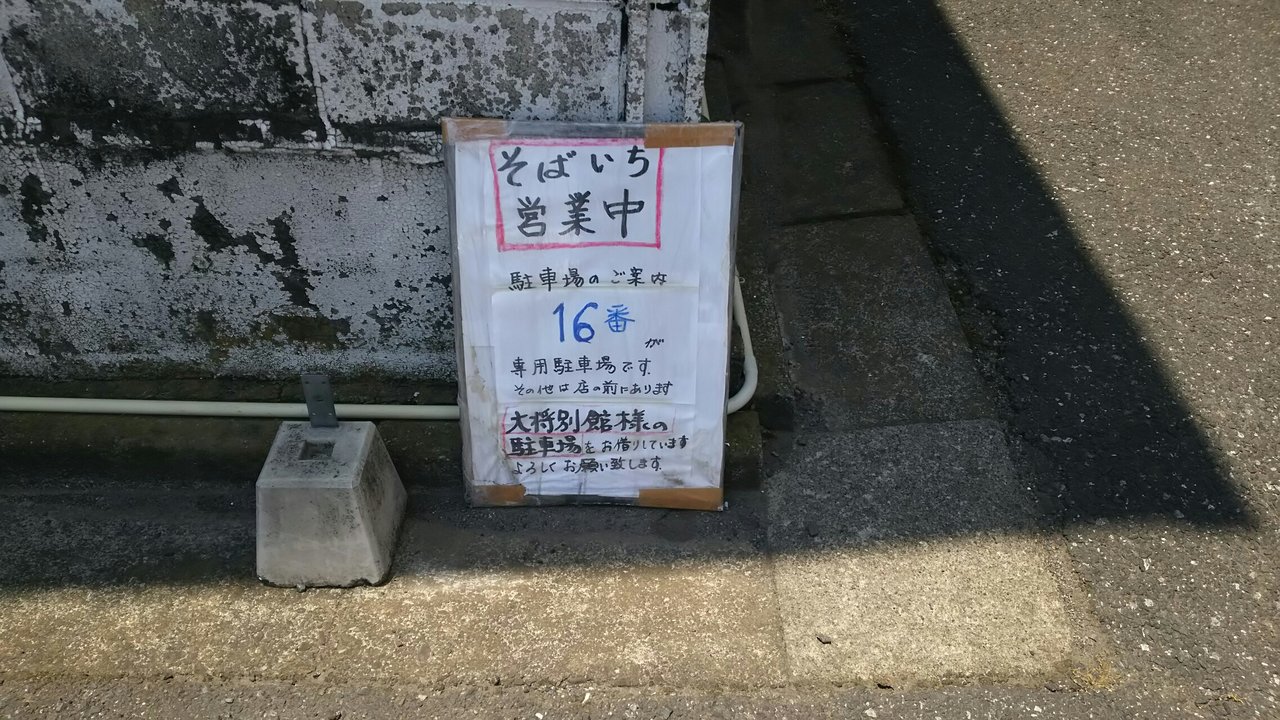 そばいち
営業中
駐車場のご案内
16番
が
専用駐車場です.
その他は店の前にあります
大将別館様の
駐車場をお借りしています
よろしくお願い致します.